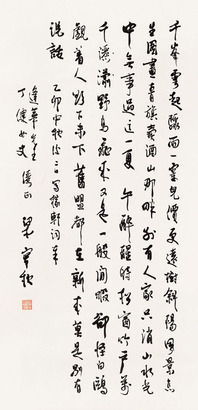 千峯雲起驟雨一霎兒價更遠樹斜陽風景怎
生圖畫青旗賣酒山那畔別有人家只消山水光
中無事過這一夏 午醉醒時松窗竹戶萬
千瀟灑野鳥飛來又是一般閒暇卻怪白鷗
覷着人欲下未下舊盟都在新來莫是別有
說話
乙卯中秋後二日寫稼軒詞
女史 儷正 梁實秋